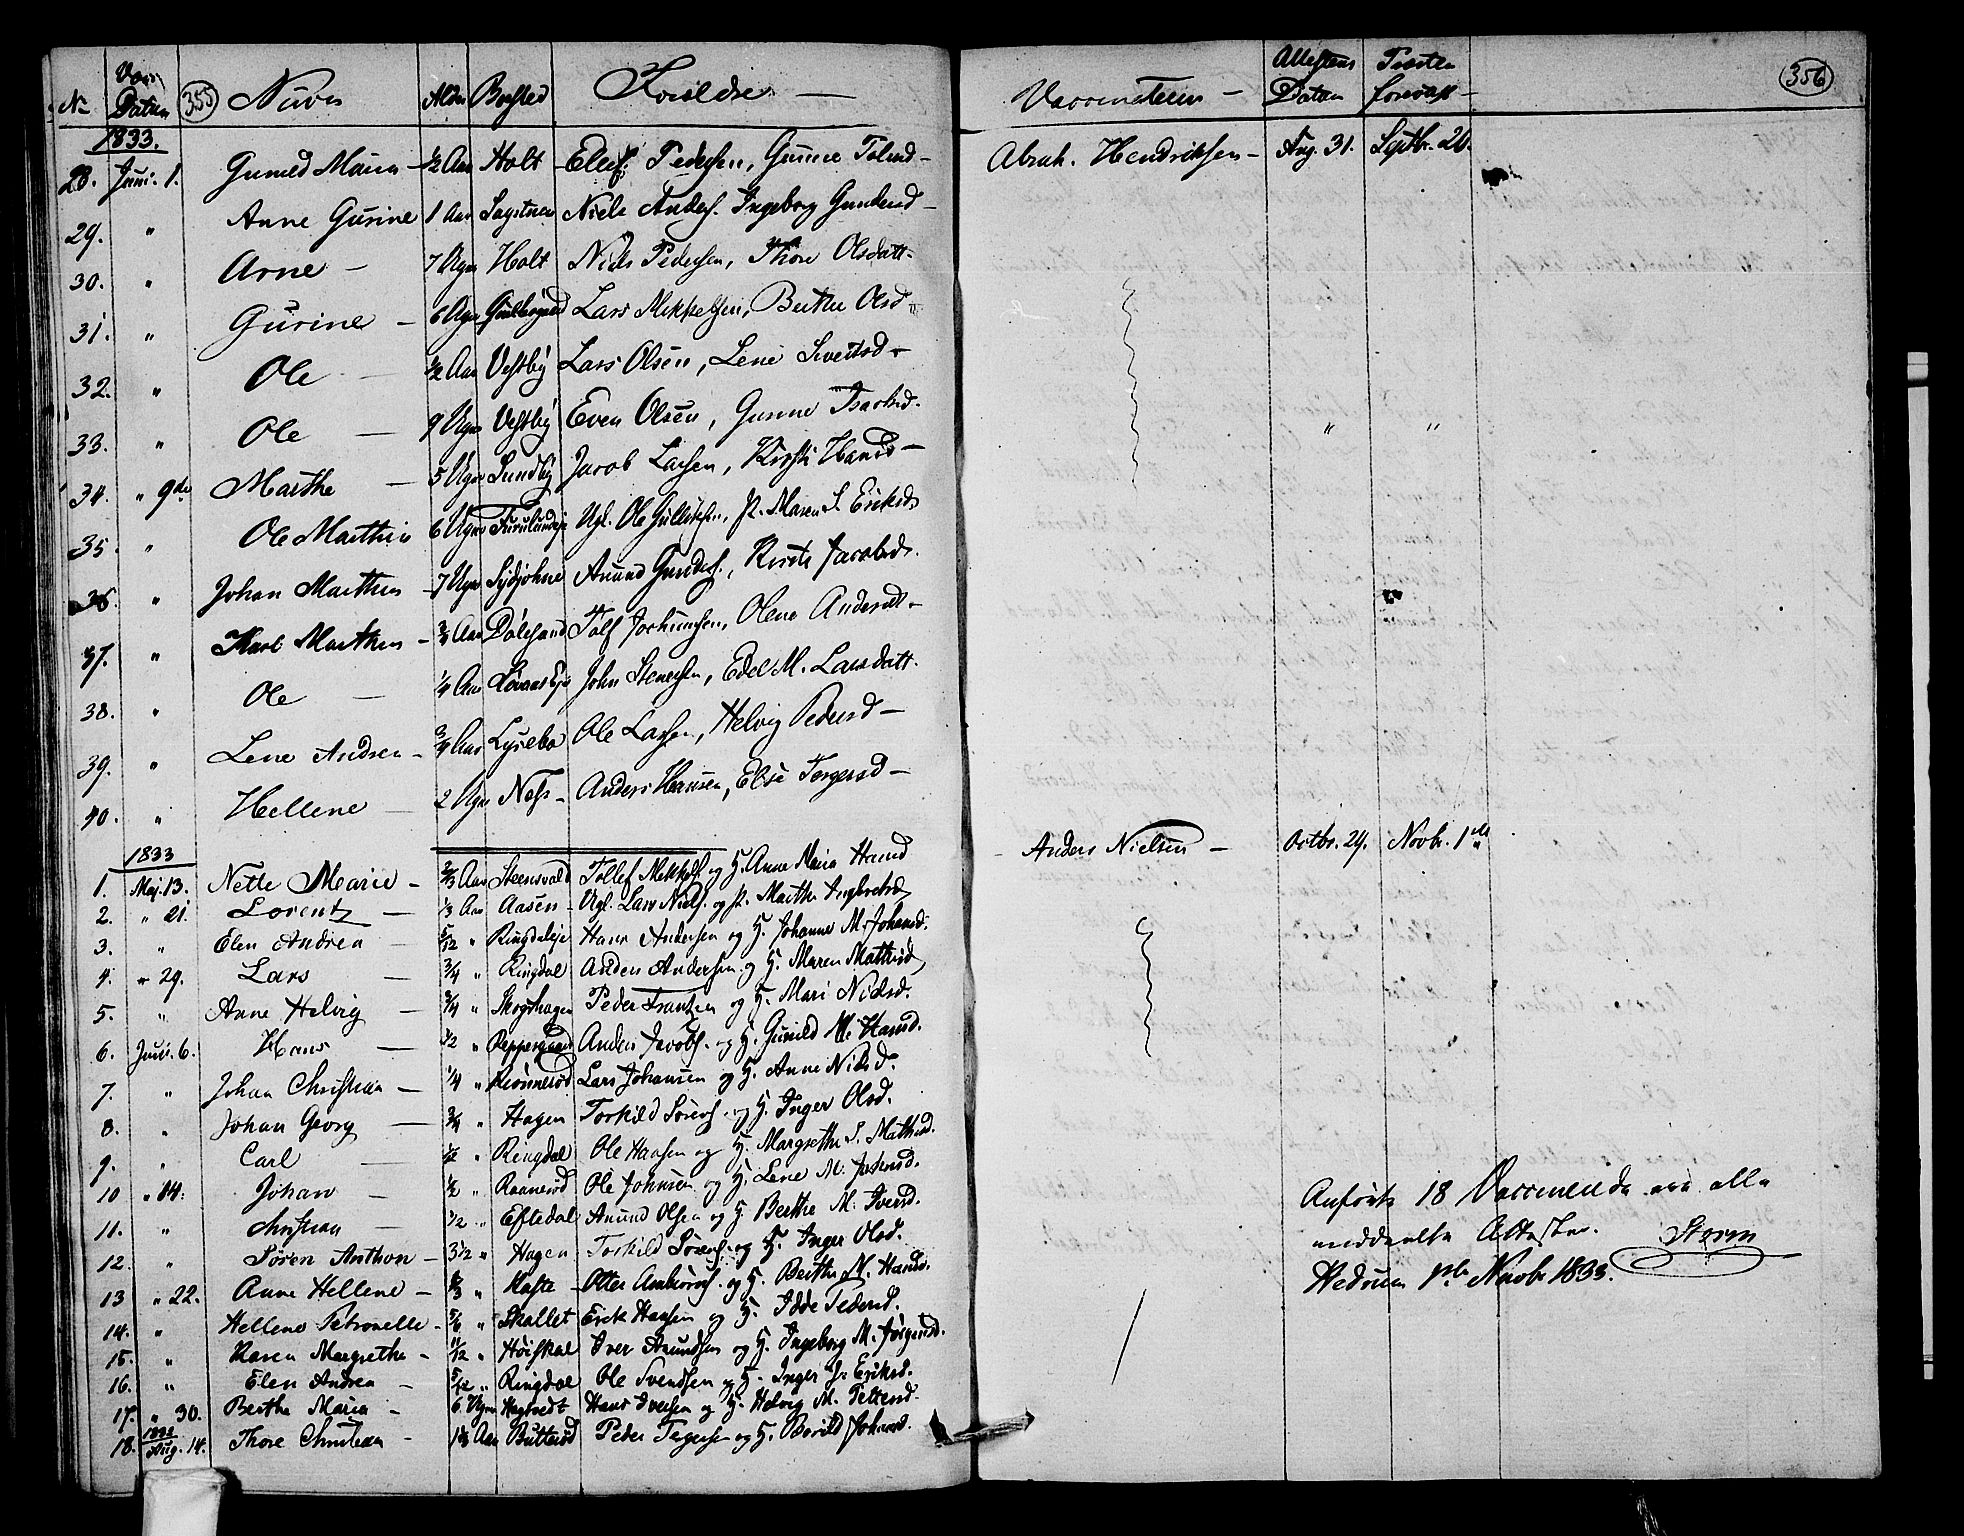 355
356
No Vac. Datum Navn Alder Bopæl Forældre — Vaccinateur — Attestens Datum Præsten forevist —
1833.
28. Juni. 1. Gunild Maria — 1/2 Aar Holt Elef Pedersen, Gunne Tolind — Abrah. Hendriksen — Aug. 31. Septbr. 20.
29. " Anne Gurine 1 Aar Niels Anders. Ingeborg Gundersd —
30. " Arne — 7 Uger Holt Niels Pedersen, Thore Olsdatt.
31. " Gurine — 6 Uger Lars Mikkelsen, Berthe Olsd
32. " Ole — 1/2 Aar Vestby Lars Olsen, Lene Sivertsd —
33. " Ole — 9 Uger Vestby Even Olsen, Gunne Isacksd. " "
34. " 9de Marthe — 5 Uger Sundby Jacob Larsen, Kirsti Hansd —
35. " Ole Marthin 6 Uger Ugl. Ole Gulliksen, P. Maren S. Eriksd
36. " Johan Marthin — 7 Uger Anund Gunders., Kirsti Jacobsd.
37. " Karl Marthin — 3/4 Aar Dalesand Tolf Jochumsen, Olene Andersdt —
38. " Ole — 1/4 Aar John Stenersen, Edel M. Larsdatt.
39. " Lene Andrea — 3/4 Aar Lysebo Ole Larsen, Helvig Pedersd —
40. " Hellene — 2 Uger Nes — Anders Hansen, Else Torgersd —
1833
1. Maj. 13. Nette Marie — 2/3 Aar Steensvald Tollef Mikkels. og H. Anne Maria Hansd — Anders Nielsen — Octbr. 29. Novbr. 1ste
2. " 21. Lorentz — 1/3 Aar Aasen — Ugl. Lars Niels. og P. Marthe Ingebretsd
3. " Elen Andrea — 5/12 " Ringdaleje Hans Andersen og H. Johanne M. Johansd.
4. " 29. Lars — 3/4 " Ringdal Anders Andersen og H. Maren Mathisd
5. " Anne Helvig — 3/4 " Skogshagen Peder Frantzen og H. Mari Nielsd.
6. Juni. 6. Hans — 1/2 " Peppergaard Anders Jacobs. og H. Gunild M. Hansd.
7. " Johan Christian — 1/4 " Lars Johansen og H. Anne Nielsd.
8. " Johan Georg — 3/4 " Hagen Torkild Sørens. og H. Inger Olsd.
9. " Carl — " Ringdal Ole Hansen og H. Margrethe S. Mathisd.
10 " 14. Johan — 1/2 " Raanerød Ole Johnsen og H. Lene M. Jensd.
11. " Christian — 1/2 " Eftedal Anund Olsen og H. Berthe M. Iversd.
12. " Søren Anthon — 3 1/2 " Hagen Torkild Sørens. og H. Inger Olsd.
13 " 22. Anne Hellene — " Hafte — Otter Ambrørs. og H. Berthe N. Hansd.
14. " Hellene Petronelle — 5/6 " Skallet Erik Hansen og H. Idde Pedersd.
15. " Karen Margrethe — 11/12 " Høiskal Iver Anundsen og H. Ingeborg M. Jørgensd.
16. " Elen Andrea — 5/12 " Ringdal Ole Svendsen og H. Inger Jr. Eriksd.
17. " 30. Berthe Maria — 6 Uger Hagtvedt Hans Iversen og H. Helvig M. Pettersd.
18. 1832 Aug. 14. Thore Christian — 1 1/3 Aar Butterød Peder Torgersen og H. Borild Johnsd.
Anførte 18 Vaccinerede ere alle
meddeelte Attester. Storm
Hedrum 1ste Novbr 1833.